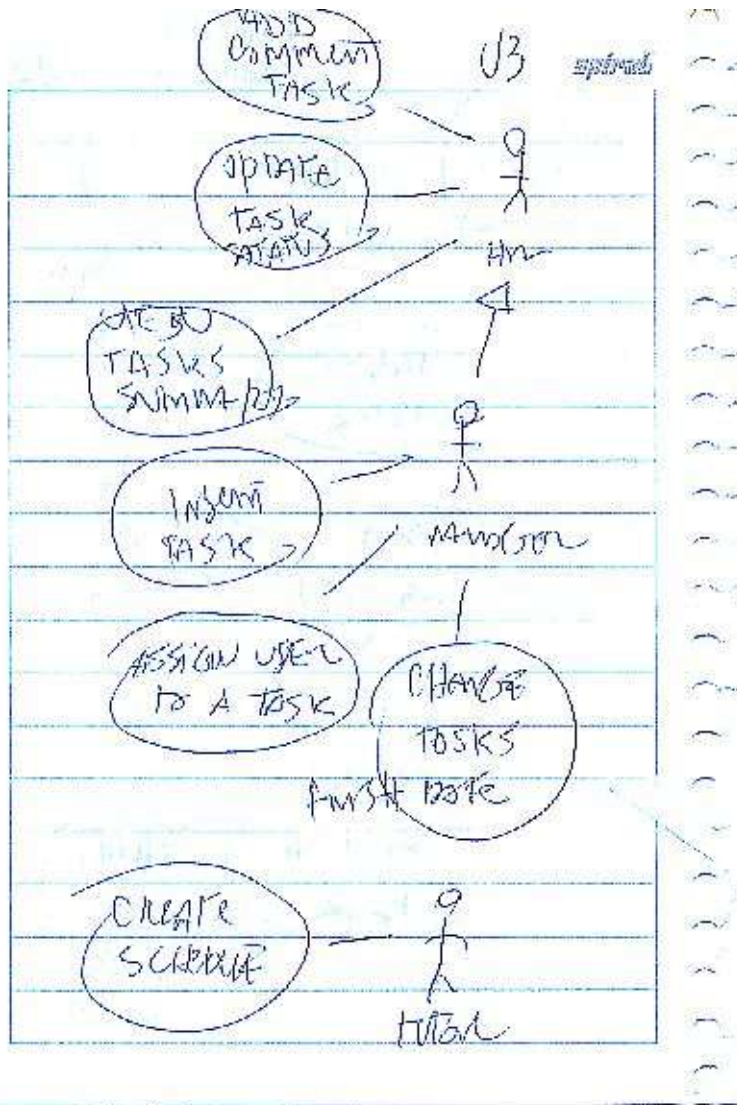 ADD
Comment
TASK
U3
spiral
UPDATE
TASK
STATUS
VIEW
TASKS
SUMMARY
INSERT
TASK
MANAGER
ASSIGN USER
TO A TASK
CHANGE
TASKS
FINISH DATE
CREATE
SCHEDULE